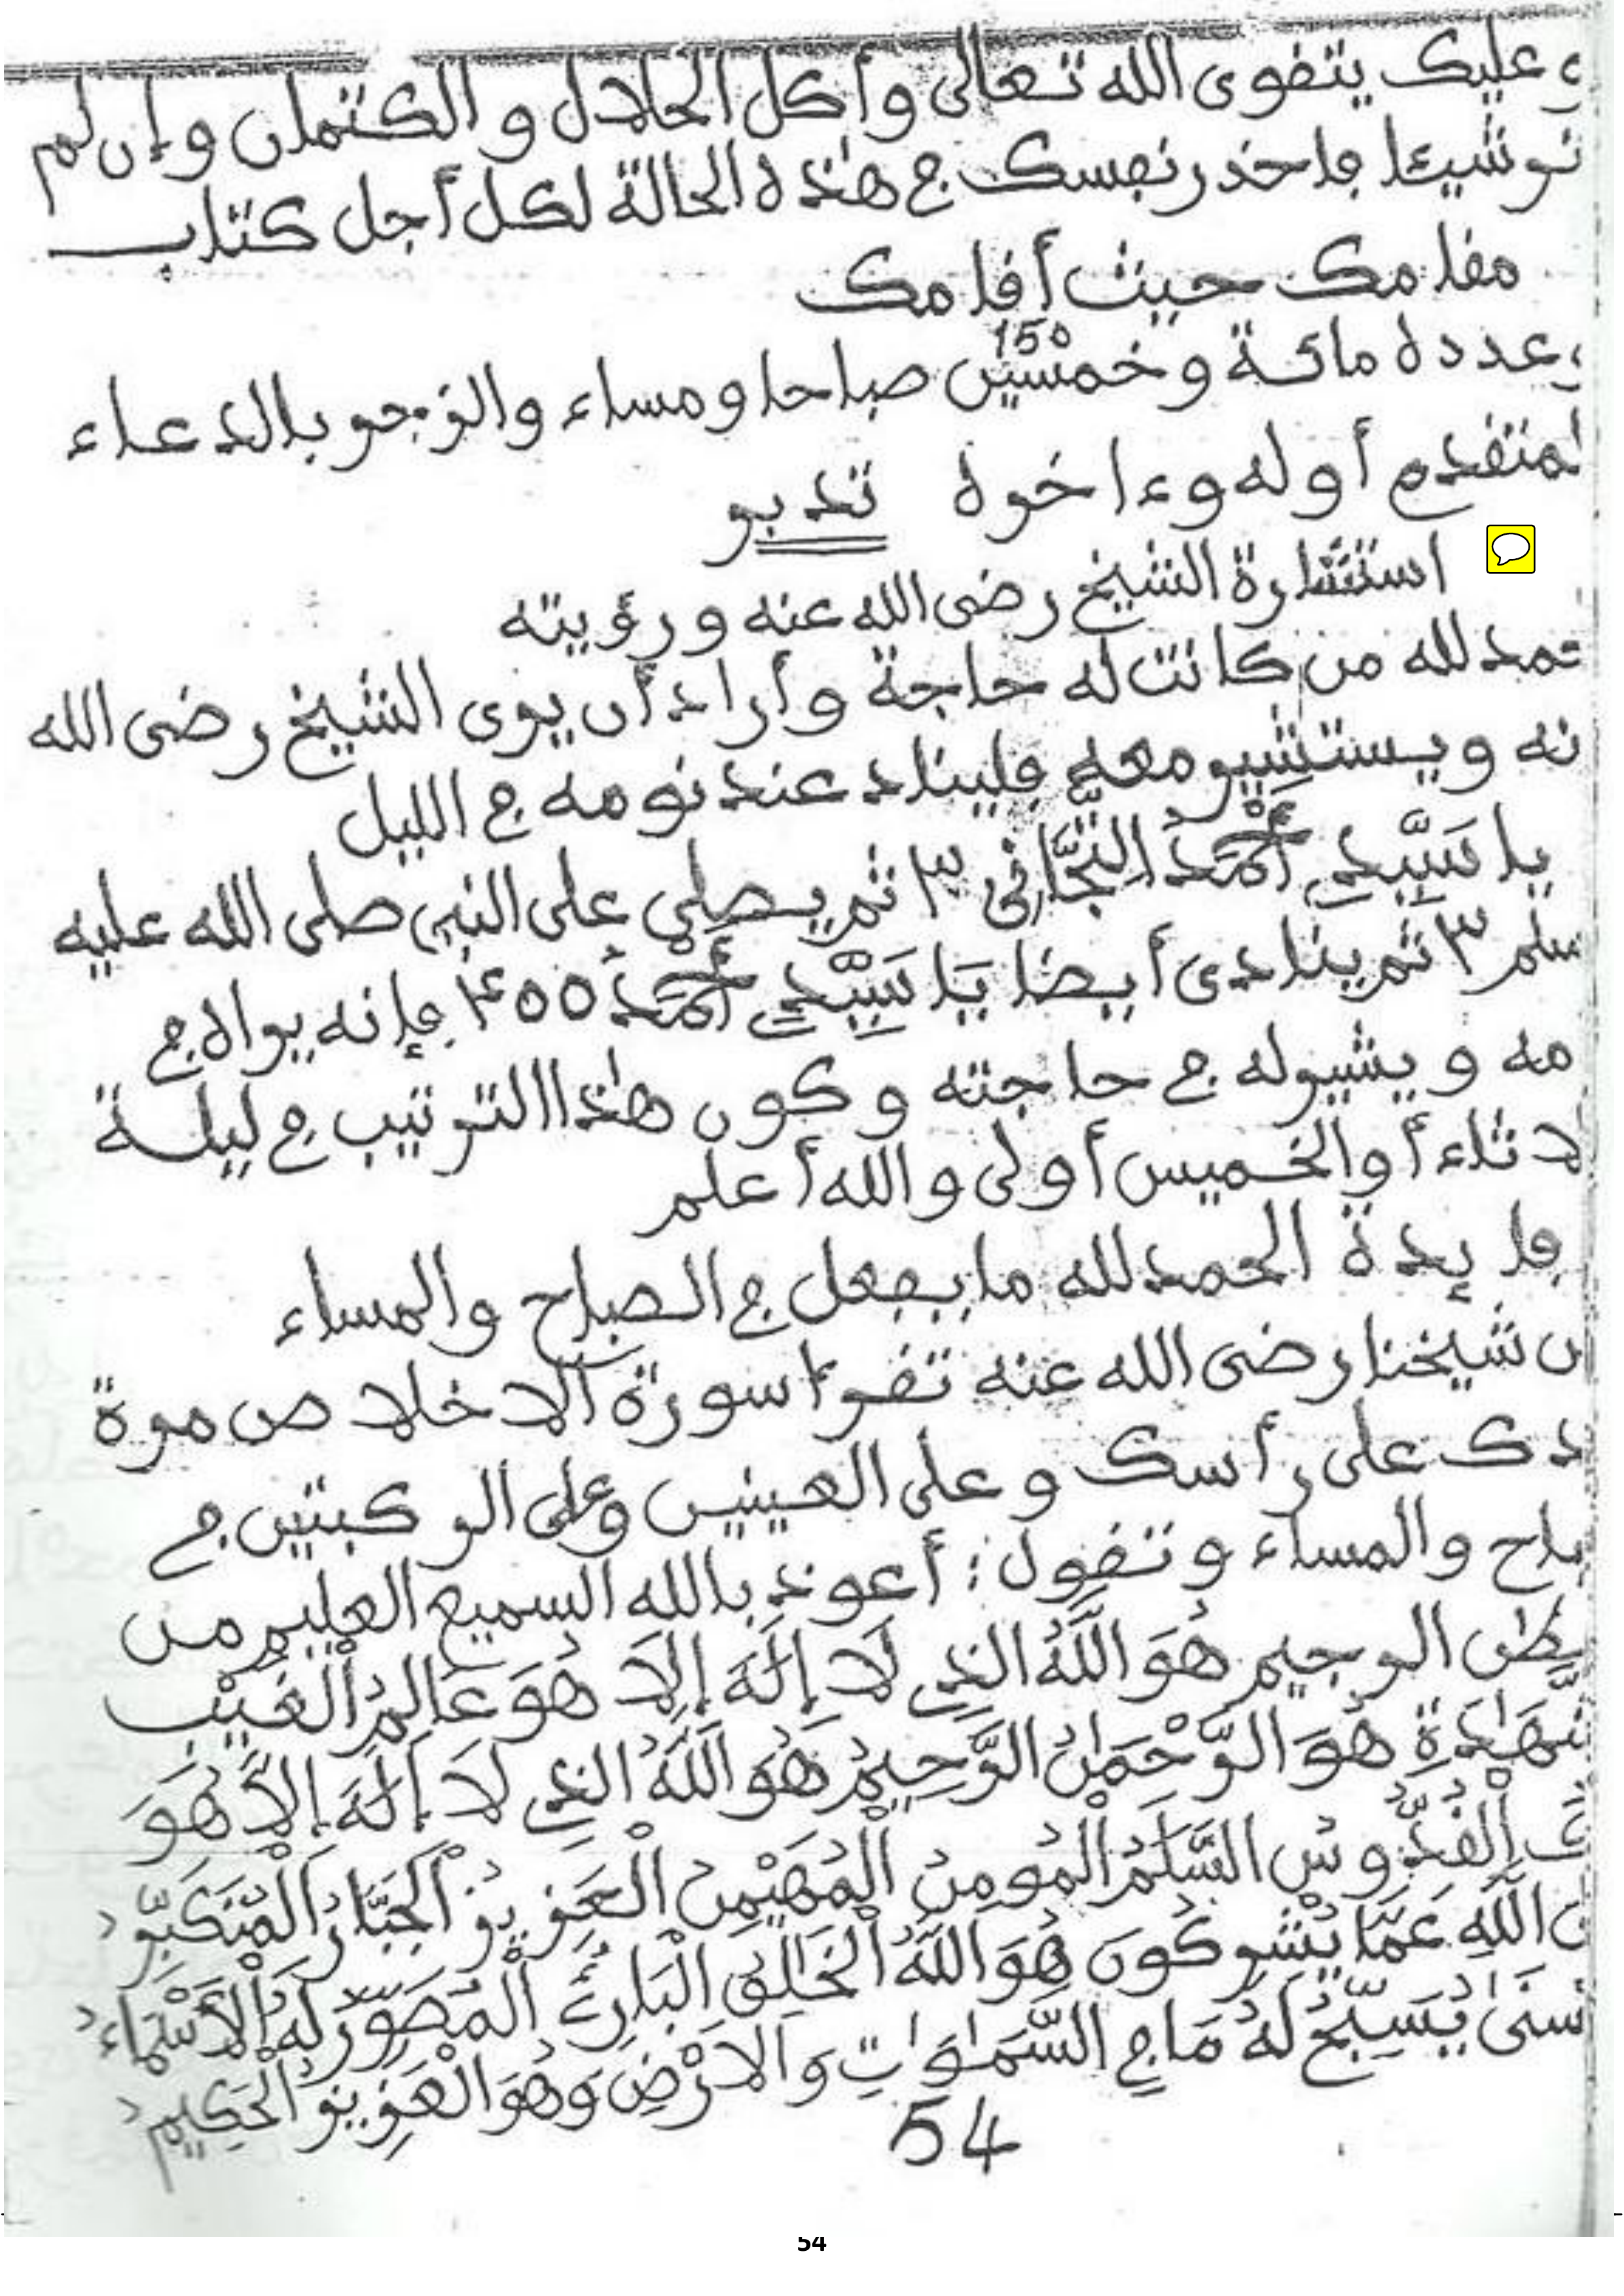 وعليك بتقوى الله تعالى وأكل الحلال والكتمان وإن لم
تر شيئا فاحذر نفسك في هذه الحالة لكل أجل كتاب
مقامك حيث أقامك
150
وعدده مائة وخمسين صباحا ومساء والزجر بالدعاء
لمتقدم أوله وءاخره تدبر
استشارة الشيخ رضى الله عنه ورؤيته
حمد لله من كانت له حاجة وأراد أن يرى الشيخ رضى الله
نه ويستشير معه فليناد عند نومه في الليل
يا سَيِّدِي أَحْمَدُ التِّجَّانِى ٣ ثم يصلي على النبي صلى الله عليه
سلم ٣ ثم ينادى أيضا يَا سَيِّدِي أَحْمَدُ ٤٥٥ فإنه يراه في
مه ويشير له في حاجته وكون هٰذا الترتيب في ليلة
لاثاء أو الخميس أولى والله أعلم
فايدة الحمد لله ما يفعل في الصباح والمساء
ن شيخنا رضى الله عنه تقرأ سورة الاخلاص مرة
دك على رأسك وعلى العينين وعلى الركبتين في
باح والمساء وتقول: أعوذ بالله السميع العليم من
يطٰن الرجيم هُوَ اللَّهُ الذِي لَا إِلَٰهَ إِلَّا هُوَ عَالِمُ الْغَيْبِ
شَهَٰدَةِ هُوَ الرَّحْمَٰنُ الرَّحِيمُ هُوَ اللَّهُ الذِي لَا إِلَٰهَ إِلَّا هُوَ
ك الْقُدُّوسُ السَّلَٰمُ الْمُومِنُ الْمُهَيْمِنُ الْعَزِيزُ الْجَبَّارُ الْمُتَكَبِّرُ
ن اللَّهِ عَمَّا يُشْرِكُونَ هُوَ اللَّهُ الْخَٰلِقُ الْبَارِئُ الْمُصَوِّرُ لَهُ الْأَسْمَاءُ
سنَىٰ يُسَبِّحُ لَهُ مَا فِي السَّمَٰوَٰتِ وَالَارْضِ وَهُوَ الْعَزِيزُ الْحَكِيمُ
54
54